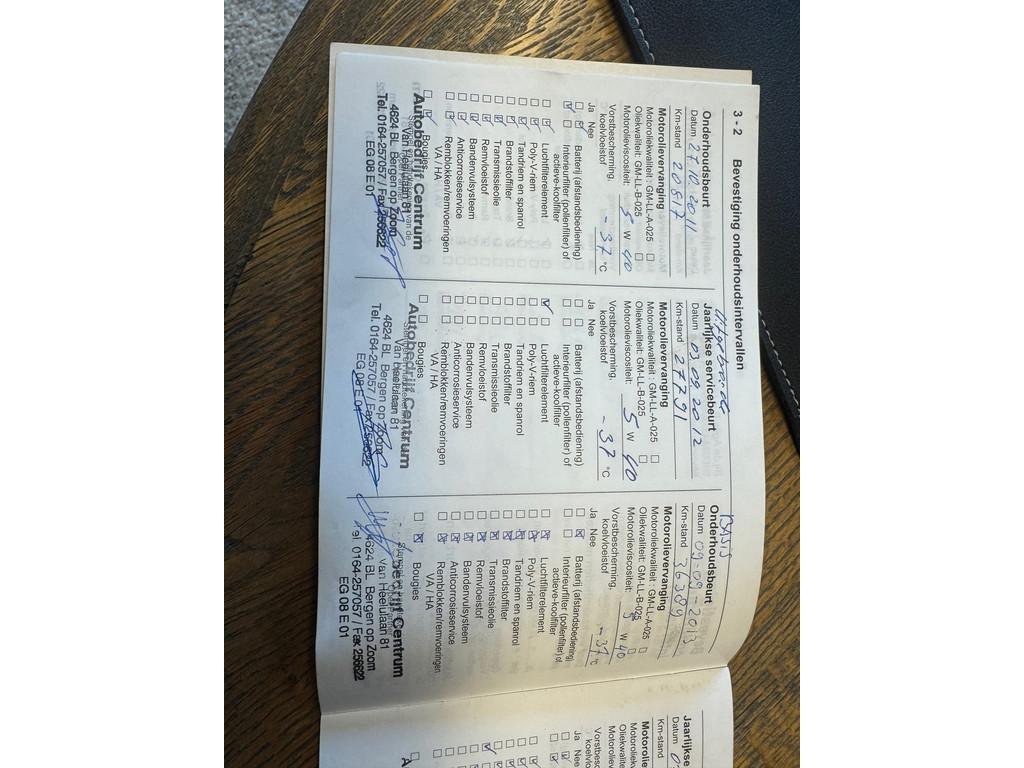 3 - 2 Bevestiging onderhoudsintervallen
Onderhoudsbeurt
Datum 27.10.2011
Km-stand 20817
Motorolievervanging
Motoroliekwaliteit : GM-LL-A-025
Oliekwaliteit: GM-LL-B-025
Motorolieviscositeit: 5 W 40
Vorstbescherming,
koelvloeistof -37 °C
Ja Nee
Batterij (afstandsbediening)
Interieurfilter (pollenfilter) of
actieve-koolfilter
Luchtfilterelement
Poly-V-riem
Tandriem en spanrol
Brandstoffilter
Transmissieolie
Remvloeistof
Bandenvulsysteem
Anticorrosieservice
Remblokken/remvoeringen
VA / HA
Bougies
Autobedrijf Centrum
Van Heelulaan 81
4624 BL Bergen op Zoom
Tel. 0164-257057 / Fax 256622
EG 08 E 01
Uitgebreide
Jaarlijkse servicebeurt
Datum 03 09 2012
Km-stand 27791
Motorolievervanging
Motoroliekwaliteit : GM-LL-A-025
Oliekwaliteit: GM-LL-B-025
Motorolieviscositeit: 5 W 40
Vorstbescherming,
koelvloeistof -37 °C
Ja Nee
Batterij (afstandsbediening)
Interieurfilter (pollenfilter) of
actieve-koolfilter
Luchtfilterelement
Poly-V-riem
Tandriem en spanrol
Brandstoffilter
Transmissieolie
Remvloeistof
Bandenvulsysteem
Anticorrosieservice
Remblokken/remvoeringen
VA / HA
Bougies
Autobedrijf Centrum
Van Heelulaan 81
4624 BL Bergen op Zoom
Tel. 0164-257057 / Fax 256622
EG 08 E 01
BASIS
Onderhoudsbeurt
Datum 09-09-2013
Km-stand 36389
Motorolievervanging
Motoroliekwaliteit : GM-LL-A-025
Oliekwaliteit: GM-LL-B-025
Motorolieviscositeit: 5 W 40
Vorstbescherming,
koelvloeistof -37 °C
Ja Nee
Batterij (afstandsbediening)
Interieurfilter (pollenfilter) of
actieve-koolfilter
Luchtfilterelement
Poly-V-riem
Tandriem en spanrol
Brandstoffilter
Transmissieolie
Remvloeistof
Bandenvulsysteem
Anticorrosieservice
Remblokken/remvoeringen
VA / HA
Bougies
bedrijf Centrum
Van Heelulaan 81
4624 BL Bergen op Zoom
Tel. 0164-257057 / Fax 256622
EG 08 E 01
Jaarlijkse
Datum
Km-stand
Motorolie
Motoroliek
Oliekwalite
Motorolie
Vorstbesc
koe
Ja Nee